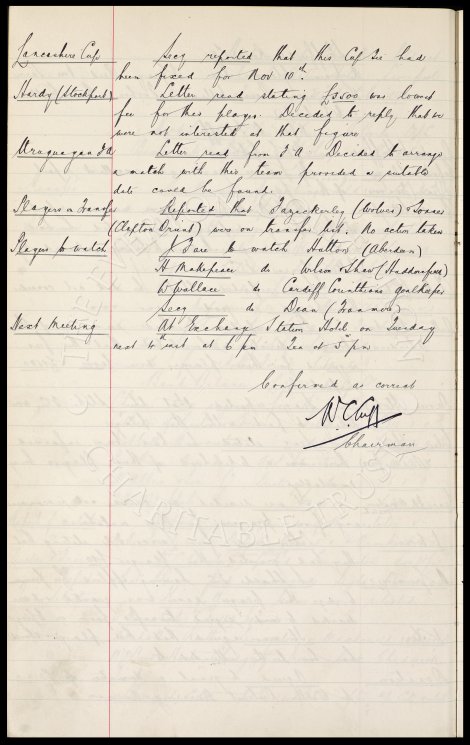 Lancashire Cup Secy reported that this Cup Tie had
been fixed for Nov 10th.
Hardy (Stockport) Letter read stating £3500 was lowest
fee for this player. Decided to reply that we
were not interested at that figure
Uruguayan FA Letter read from F A. Decided to arrange
a match with this team provided a suitable
date could be found.
Players on Transfer Reported that Fazackerley (Wolves) &
(Clapton Orient) were on transfer list. No action taken
Players to watch J Fare to watch Hutton (Aberdeen)
H Makepeace do Wilson & Shaw (Huddersfield)
W Wallace do Cardiff Corinthians goalkeeper
Secy do Dean (Tranmere)
Next Meeting At Exchange Station Hotel on Tuesday
next inst at 6 pm Tea at 5 pm
Confirmed as correct
W. C. Cuff
Chairman
CHARITABLE TRUST